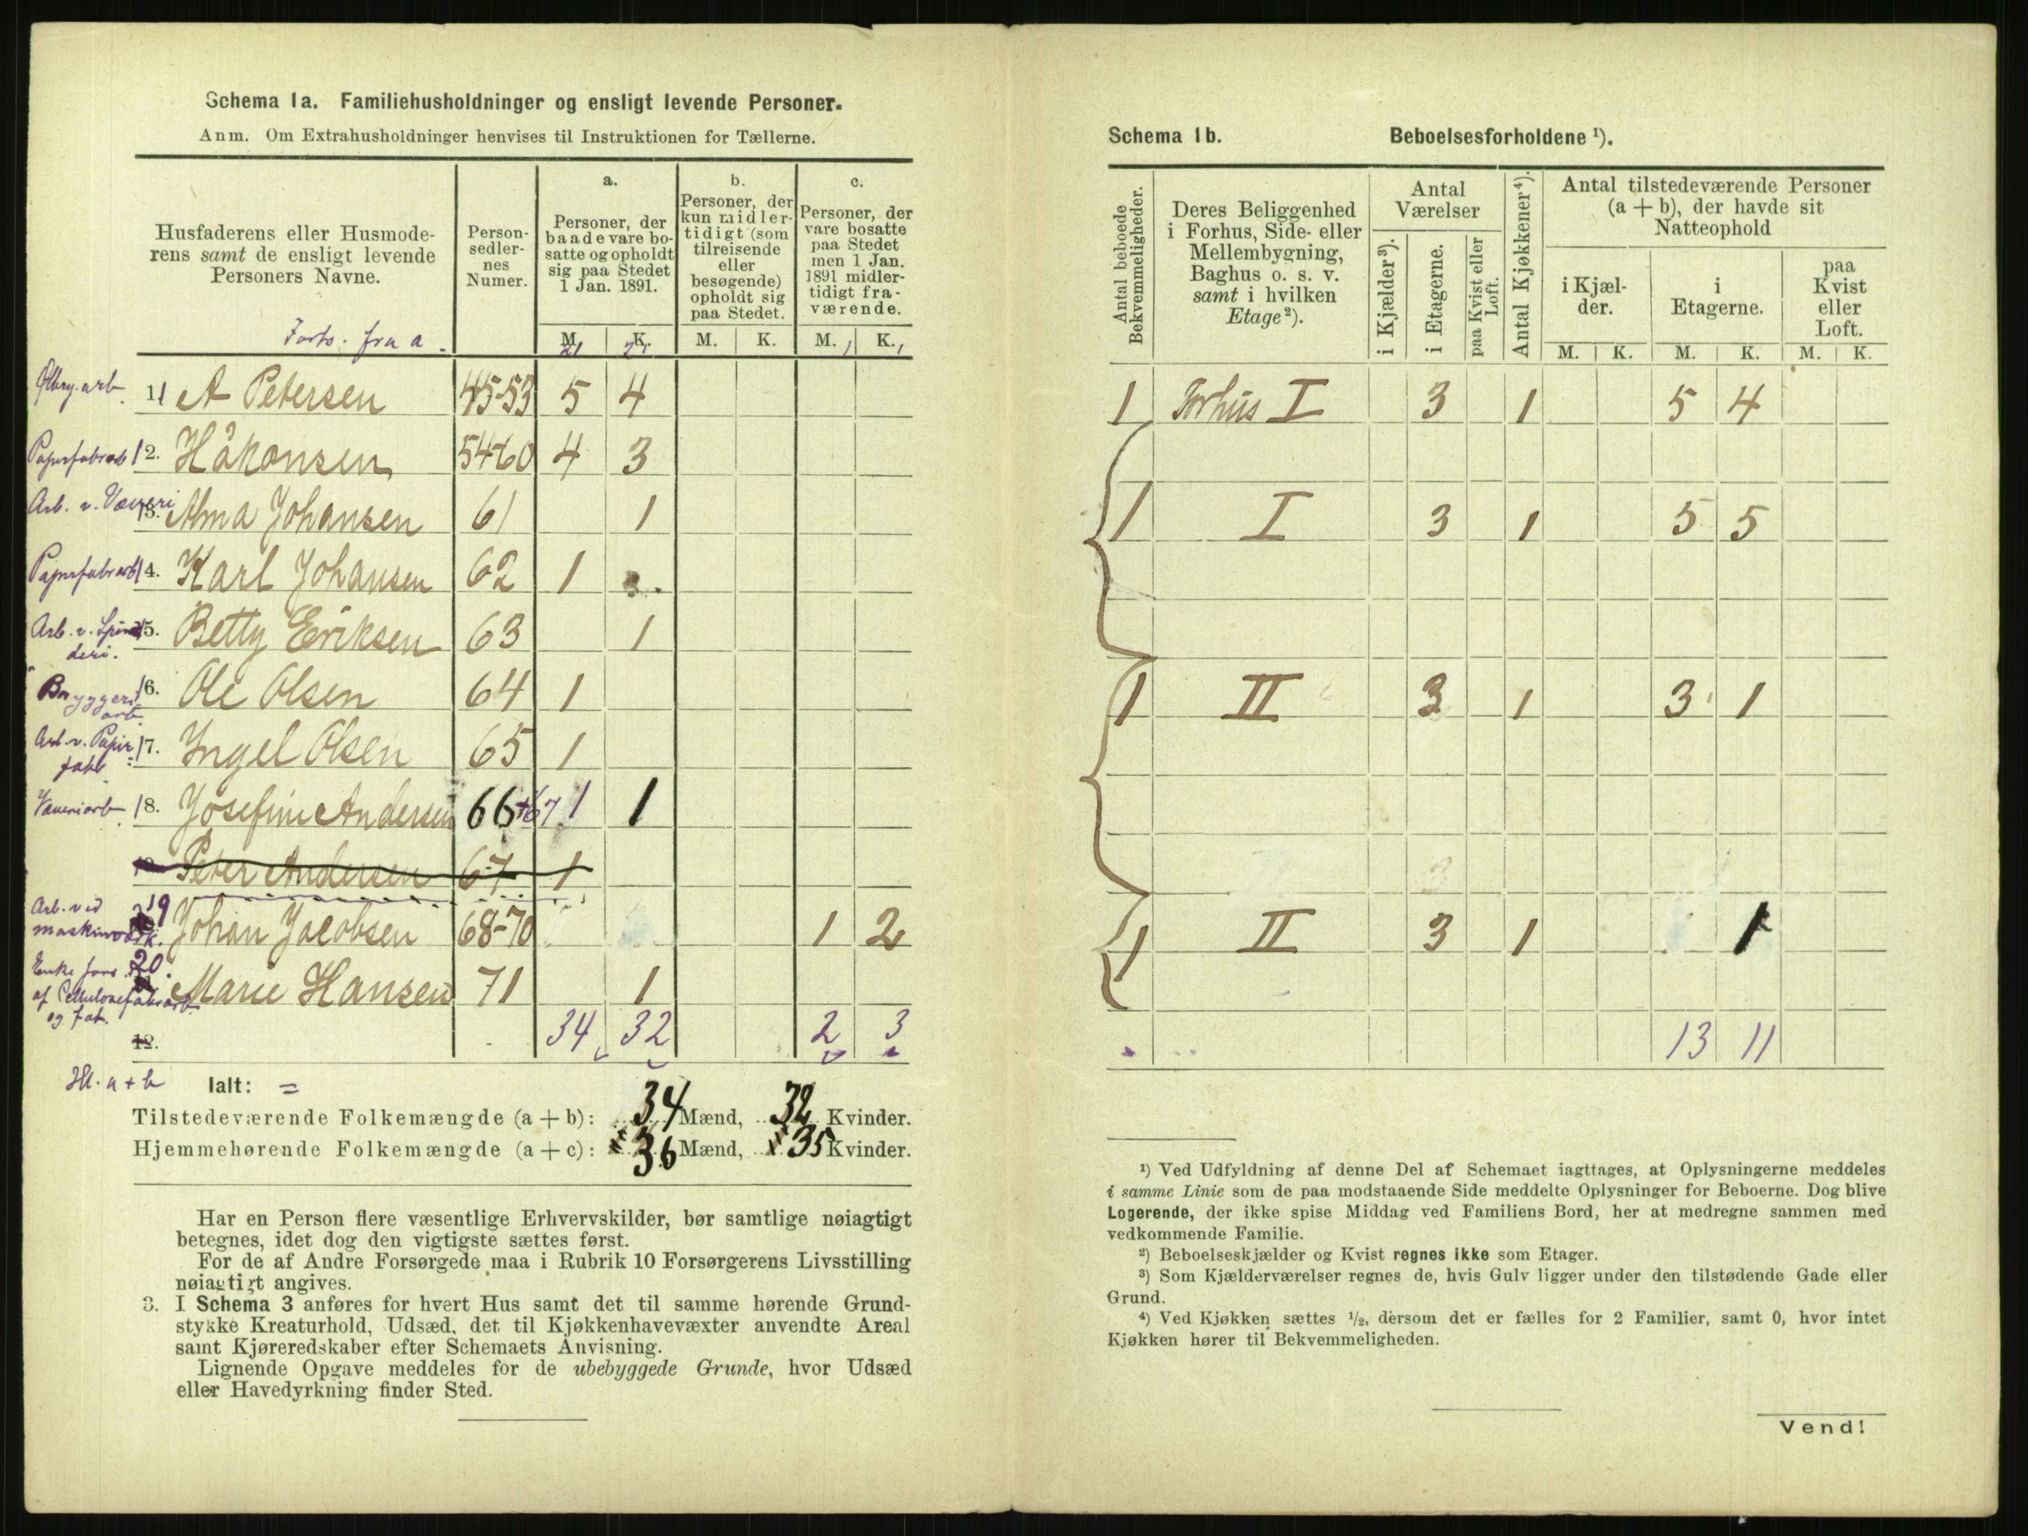 Schema 1a. Familiehusholdninger og ensligt levende Personer.
Anm. Om Extrahusholdninger henvises til Instruktionen for Tællerne.
Husfaderens eller Husmoderens samt de ensligt levende Personers Navne.
Person-sedlernes Numer.
a. Personer, der baade vare bosatte og opholdt sig paa Stedet 1 Jan. 1891.
b. Personer, der kun midlertidigt (som tilreisende eller besøgende) opholdt sig paa Stedet.
c. Personer, der vare bosatte paa Stedet men 1 Jan. 1891 midlertidigt fraværende.
M. K. M. K. M. K.
Forts. fra a. 21 21 1 1
Ølbry.arb. 11 A Petersen 45-53 5 4
Papirfabrarb 12. Håkonsen 54-60 4 3
Arb. v. Væveri 13. Alma Johansen 61 1
Papirfabrarb 14. Karl Johansen 62 1
Arb. v. Spinderi. 15. Betty Eriksen 63 1
Bryggeriarb. 16. Ole Olsen 64 1
Arb. v. Papirfabr. 17. Ingel Olsen 65 1
Væveriarb. 18. Josefine Andersen 66+67 1 1
Peter Andersen 67 1
Arb. ved maskinværk. 19 Johan Jacobsen 68-70 1 2
Enke fors. af Cellulosefabrarb og fat. 20. Marie Hansen 71 1
12. 34 32 2 3
Ialt: =
Tilstedeværende Folkemængde (a + b): 34 Mænd, 32 Kvinder.
Hjemmehørende Folkemængde (a + c): x 36 Mænd, x 35 Kvinder.
Har en Person flere væsentlige Erhvervskilder, bør samtlige nøiagtigt
betegnes, idet dog den vigtigste sættes først.
For de af Andre Forsørgede maa i Rubrik 10 Forsørgerens Livsstilling
nøiagtigt angives.
3. I Schema 3 anføres for hvert Hus samt det til samme hørende Grund-
stykke Kreaturhold, Udsæd, det til Kjøkkenhavevæxter anvendte Areal
samt Kjøreredskaber efter Schemaets Anvisning.
Lignende Opgave meddeles for de ubebyggede Grunde, hvor Udsæd
eller Havedyrkning finder Sted.
Schema 1b. Beboelsesforholdene ¹).
Antal beboede Bekvemmeligheder.
Deres Beliggenhed i Forhus, Side- eller Mellembygning, Baghus o. s. v. samt i hvilken Etage²).
Antal Værelser
i Kjælder³).
i Etagerne.
paa Kvist eller Loft.
Antal Kjøkkener⁴).
Antal tilstedeværende Personer (a + b), der havde sit Natteophold
i Kjælder.
i Etagerne.
paa Kvist eller Loft.
M. K. M. K. M. K.
1 Forhus I 3 1 5 4
1 I 3 1 5 5
1 II 3 1 3 1
1 II 3 1 1
13 11
¹) Ved Udfyldning af denne Del af Schemaet iagttages, at Oplysningerne meddeles
i samme Linie som de paa modstaaende Side meddelte Oplysninger for Beboerne. Dog blive
Logerende, der ikke spise Middag ved Familiens Bord, her at medregne sammen med
vedkommende Familie.
²) Beboelseskjælder og Kvist regnes ikke som Etager.
³) Som Kjælderværelser regnes de, hvis Gulv ligger under den tilstødende Gade eller
Grund.
⁴) Ved Kjøkken sættes ½, dersom det er fælles for 2 Familier, samt 0, hvor intet
Kjøkken hører til Bekvemmeligheden.
Vend!